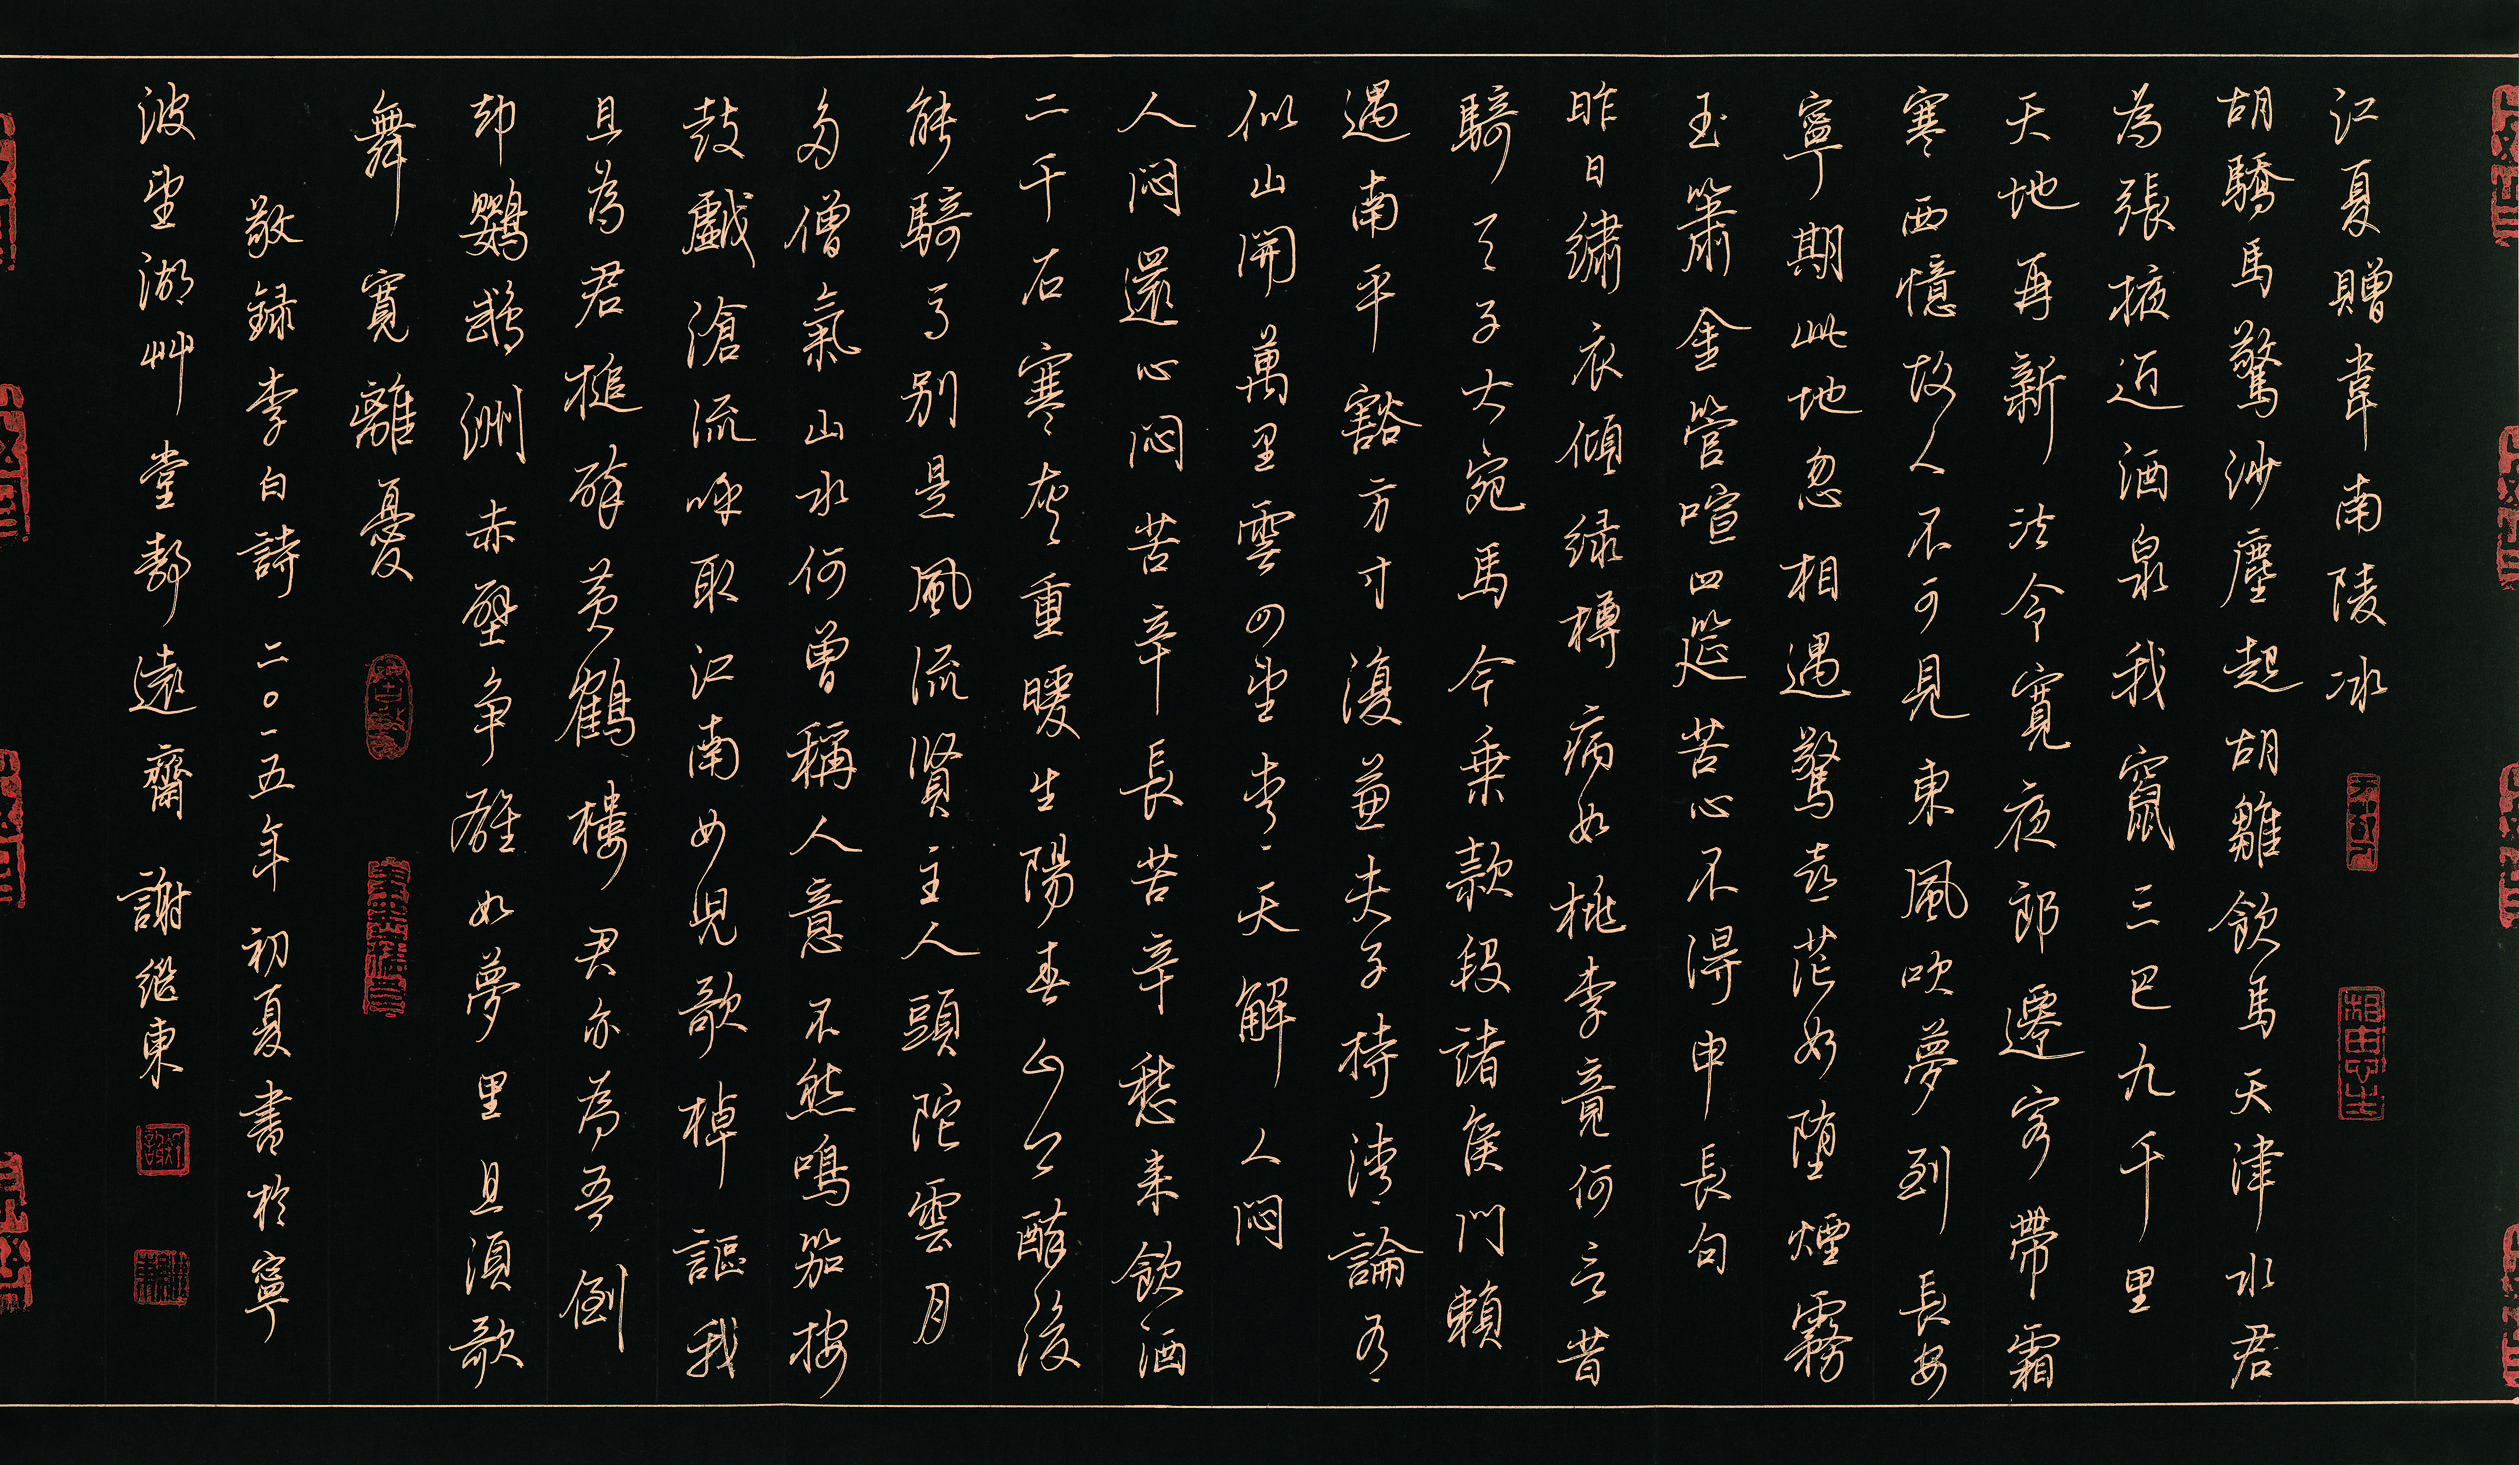 江夏贈韋南陵冰
胡驕馬驚沙塵起胡雛飲馬天津水君
為張掖近酒泉我竄三巴九千里
天地再新法令寬夜郎遷客帶霜
寒西憶故人不可見東風吹夢到長安
寧期此地忽相遇驚喜茫如墮煙霧
玉簫金管喧四筵苦心不得申長句
昨日繡衣傾緑樽病如桃李竟何言昔
騎天子大宛馬今乘款段諸侯門賴
遇南平豁方寸復兼夫子持清論有
似山開萬里雲四望青天解人悶
人悶還心悶苦辛長苦辛愁來飲酒
二千石寒灰重暖生陽春山公醉後
能騎馬別是風流賢主人頭陀雲月
多僧氣山水何曾稱人意不然鳴笳按
鼓戲滄流呼取江南女兒歌棹謳我
且為君槌碎黃鶴樓君亦為吾倒
却鸚鵡洲赤壁爭雄如夢里且須歌
舞寬離憂
敬録李白詩 二〇一五年初夏書於寧
波望湖艸堂靜遠齋 謝繼東